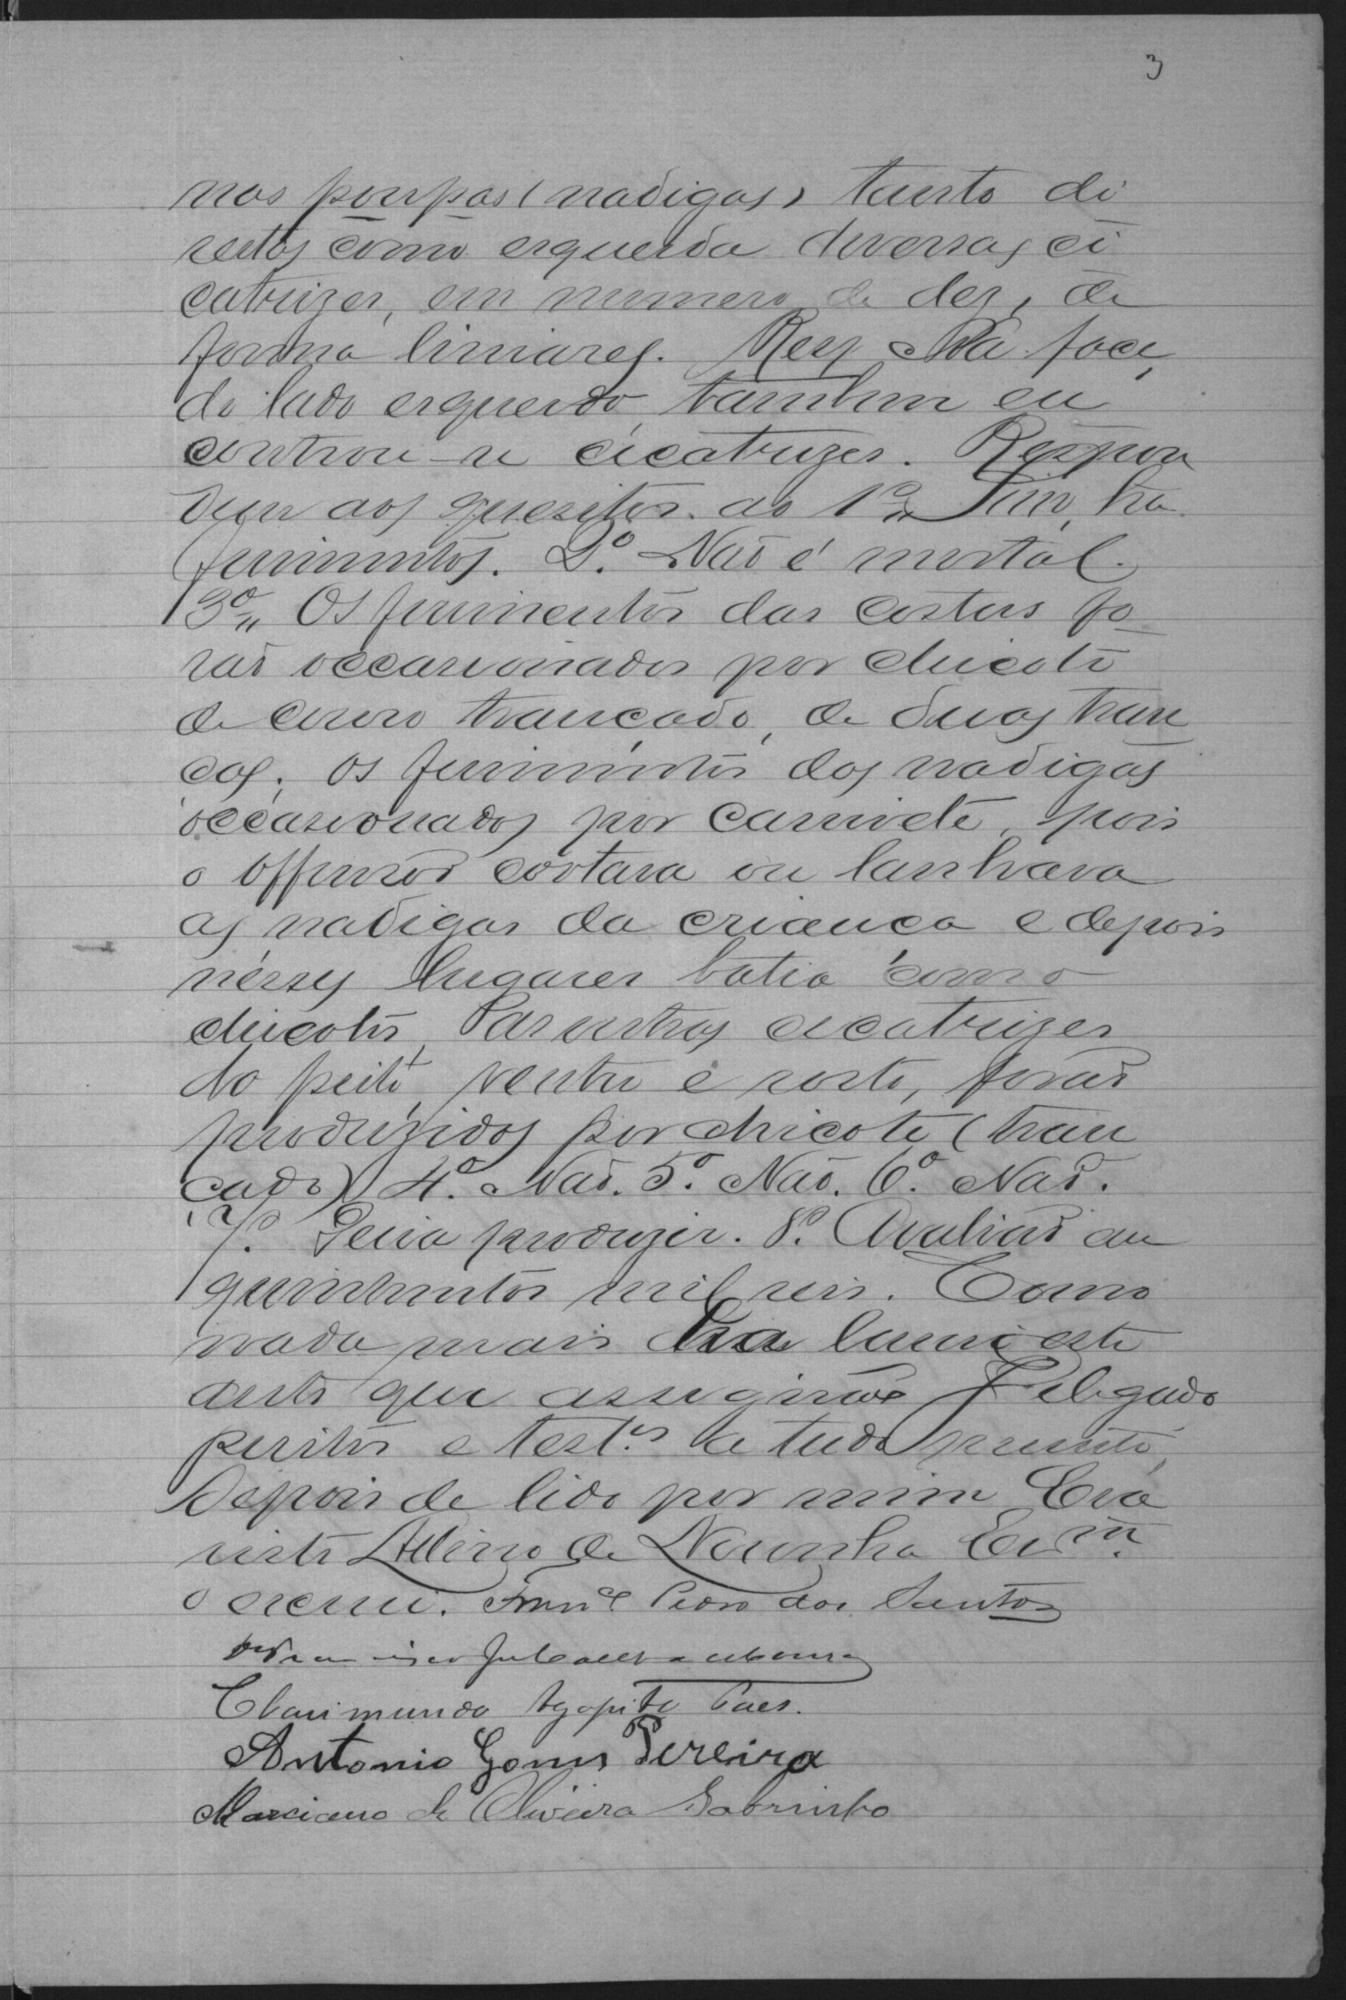 3
nas poupas (nadigas) tanto di
reitas como esquerda diversas ci
catrizes, em numero de dez, de
forma liniares. Na face,
do lado esquerdo, tambem en
controu-se cicatrizes. Respon
dem aos quesitos. ao 1º,, Sim, ha
ferimentos. 2º. Não é mortal.
3º,, Os ferimentos das costas fo
rão occasionados por chicote
de couro trançado, de duas tran
ças; os ferimentos das nadigas
occasionados por canivete, pois
o offensor cortava ou lanhava
as nadigas da criança e depois
nésses lugares batia com o
chicote, as outras cicatrizes
do peito, ventre e rosto, forão
produzidos por chicote (tran
çado) 4º. Não. 5º. Não. 6º. Não.
7º. produzir. 8º. Avalião em
quinhentos mil reis. E como
nada mais ha lavrei este
auto que assignão Delegado
peritos e test.as a tudo presente,
depois de lido por mim Eva
risto de Noronha Escm.
o escrevi. Pedro dos Santos
Clarimundo Agapito Paes.
Antonio Gomes Pereira
Marciano de Oliveira Sobrinho